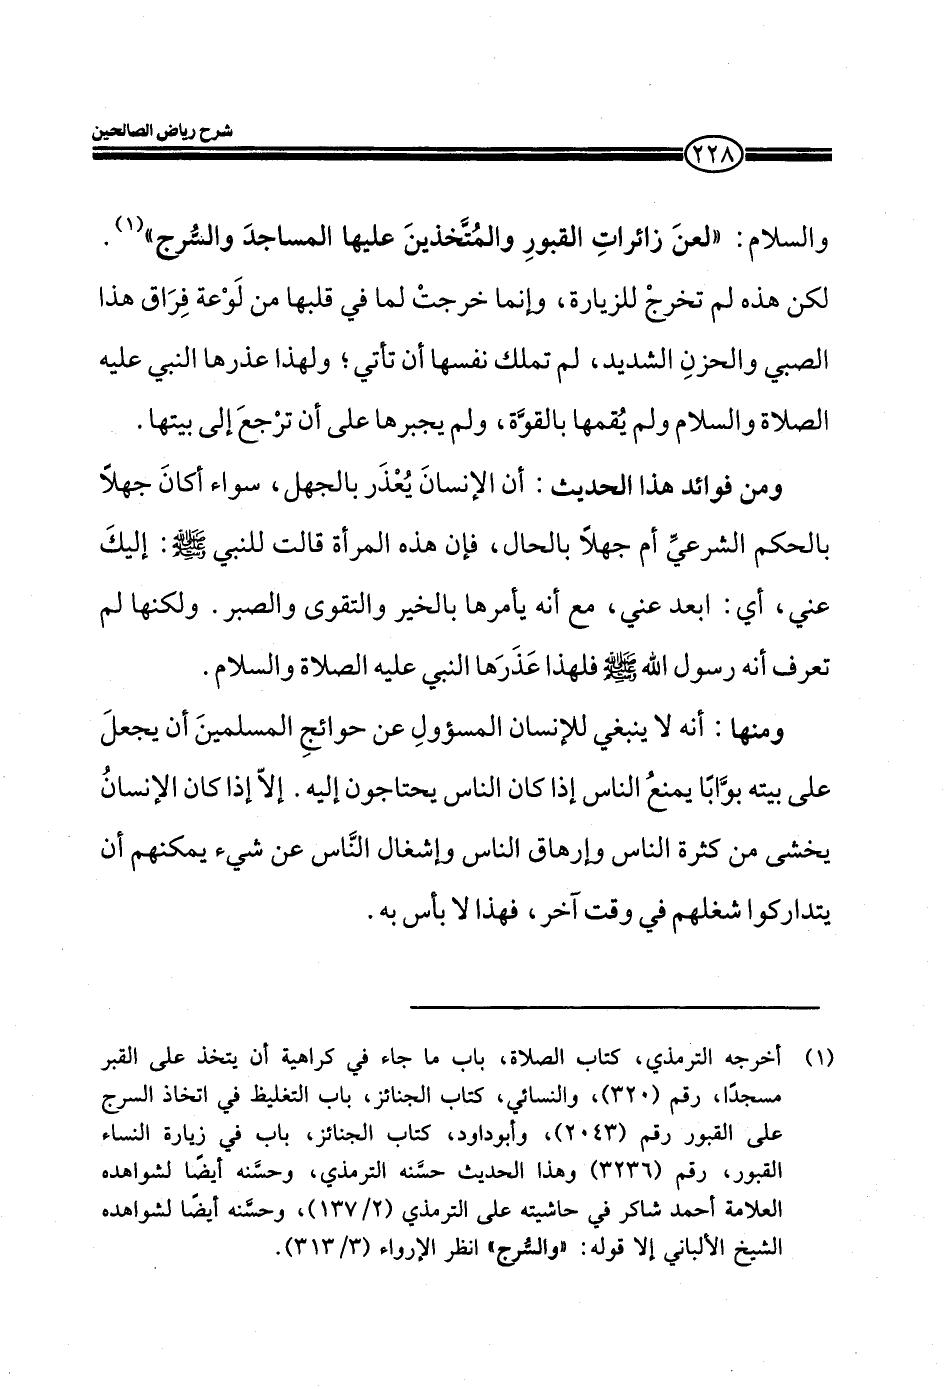 شرح رياض الصالحين
٢٢٨
والسلام: «لعنَ زائراتِ القبورِ والمُتَّخذينَ عليها المساجدَ والسُّرج»(١).
لكن هذه لم تخرجْ للزيارة، وإنما خرجتْ لما في قلبها من لَوْعة فِرَاق هذا
الصبي والحزنِ الشديد، لم تملك نفسها أن تأتي؛ ولهذا عذرها النبي عليه
الصلاة والسلام ولم يُقمها بالقوَّة، ولم يجبرها على أن ترْجعَ إلى بيتها.
ومن فوائد هذا الحديث: أن الإنسانَ يُعْذَر بالجهل، سواء أكانَ جهلاً
بالحكم الشرعيِّ أم جهلاً بالحال، فإن هذه المرأة قالت للنبي ﷺ: إليكَ
عني، أي: ابعد عني، مع أنه يأمرها بالخير والتقوى والصبر. ولكنها لم
تعرف أنه رسول الله ﷺ فلهذا عَذَرَها النبي عليه الصلاة والسلام.
ومنها: أنه لا ينبغي للإنسان المسؤولِ عن حوائجِ المسلمينَ أن يجعلَ
على بيته بوَّابًا يمنعُ الناس إذا كان الناس يحتاجون إليه. إلاّ إذا كان الإنسانُ
يخشى من كثرة الناس وإرهاق الناس وإشغال النَّاس عن شيء يمكنهم أن
يتداركوا شغلهم في وقت آخر، فهذا لا بأس به.
(١) أخرجه الترمذي، كتاب الصلاة، باب ما جاء في كراهية أن يتخذ على القبر
مسجدًا، رقم (٣٢٠)، والنسائي، كتاب الجنائز، باب التغليظ في اتخاذ السرج
على القبور رقم (٢٠٤٣)، وأبوداود، كتاب الجنائز، باب في زيارة النساء
القبور، رقم (٣٢٣٦) وهذا الحديث حسَّنه الترمذي، وحسَّنه أيضًا لشواهده
العلامة أحمد شاكر في حاشيته على الترمذي (١٣٧/٢)، وحسَّنه أيضًا لشواهده
الشيخ الألباني إلا قوله: «والسُّرج» انظر الإرواء (٣١٣/٣).